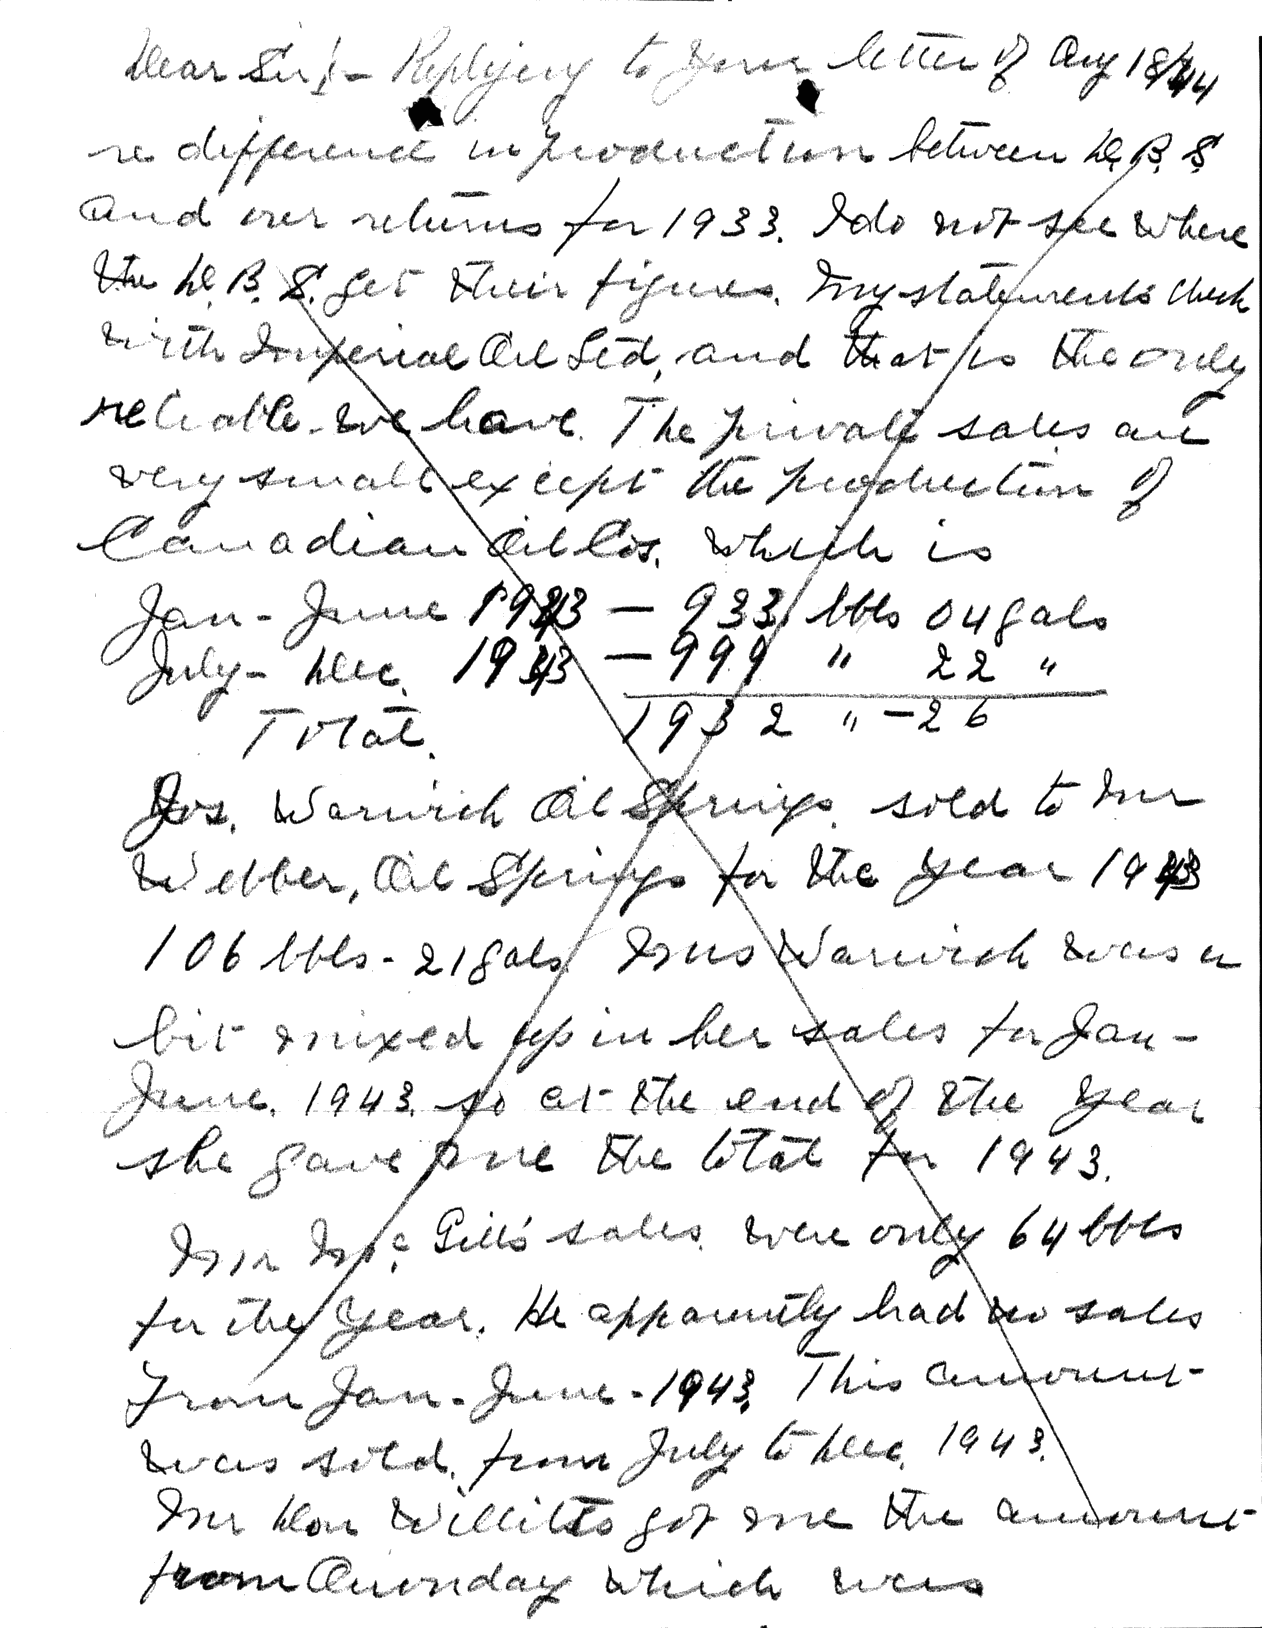 Dear Sir:- Replying to your letter of Aug 18/44
re difference in production between D.B.S.
and our returns for 1933. I do not see where
the D.B.S. get their figures. My statements check
with Imperial Oil Ltd, and that is the only
reliable we have. The private sales are
very small except the production of
Canadian Oil Cos. which is
Jan - June 1943 — 933 bbls 04 gals
July - Dec. 1943 — 999 " 22 "
Total. 1932 " - 26
Jos. Warwick Oil Springs. sold to Mr
Webber, Oil Springs for the year 1943
106 bbls - 21 gals. Mrs Warwick was a
bit mixed up in her sales for Jan -
June. 1943. so at the end of the year
she gave me the total for 1943.
Mr Mc Gill's sales were only 64 bbls
for the year. He apparently had no sales
from Jan - June - 1943. This amount
was sold from July to Dec. 1943.
Mr Don Willitts got me the amount
from which was